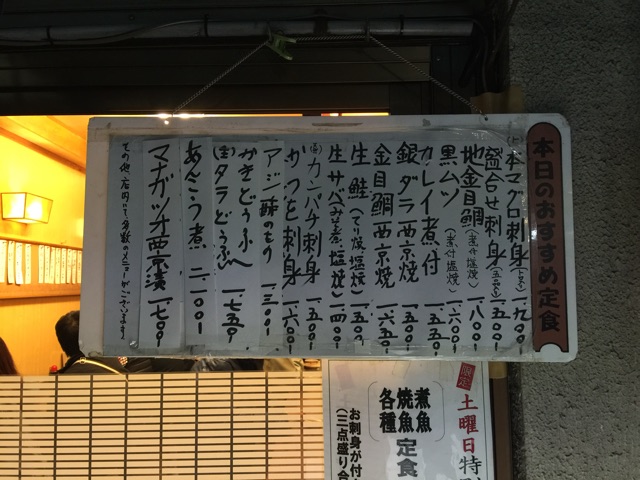 本日のおすすめ定食
本マグロ刺身 一.九〇〇
盛合せ刺身 一.五〇〇
地金目鯛(煮付塩焼) 一.八〇〇
黒ムツ(煮付塩焼) 一.六〇〇
カレイ煮付 一.五五〇
銀ダラ西京焼 一.五〇〇
金目鯛西京焼 一.六五〇
生鮭(てり焼塩焼) 一.五〇〇
生サバ(みそ煮塩焼) 一.四〇〇
カンパチ刺身 一.五〇〇
かつを刺身 一.六〇〇
アジ酢のもの 一.三〇〇
かきどうふ
タラどうふ 一.七五〇
あんこう煮 二.一〇〇
マナガツオ西京漬 一.七〇〇
その他、店内にて多数のメニューがございます。
限定
土曜日特
煮魚
焼魚
各種
定食
お刺身が付
(三点盛り合